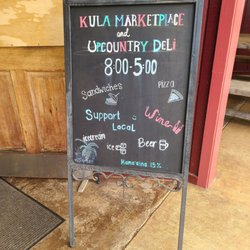 KULA MARKETPLACE
and
UPCOUNTRY DELI
8:00-5:00
Sandwiches
PIZZA
Support
Local
Wine
icecream
ice
Beer
Kama'aina 15%